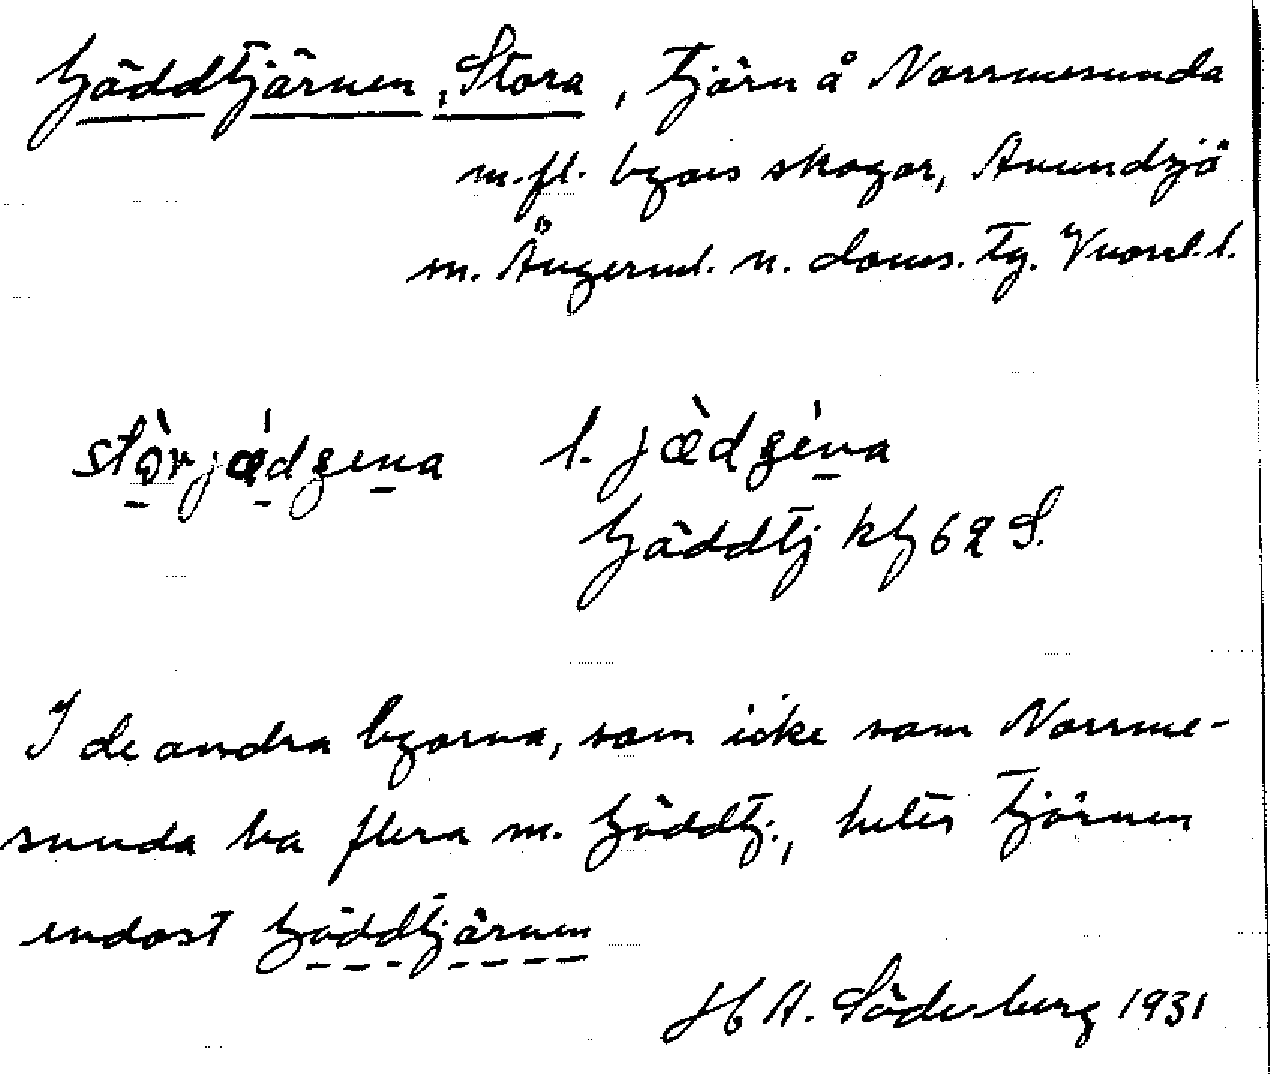 Gäddtjärnen, Stora, tjärn å Norrmesunda
m.fl. byars skogar, Anundsjö
sn. Ångerml. n. doms. tg. Vnorrl. l.
stòrjǽdgena l. jæ̀dgéna
Gäddtj kbl 62 S.
I de andra byarna, som icke som Norrme-
sunda ha flera m. Gäddtj., heter tjärnen
endast Gäddtjärnen
H A. Söderberg 1931